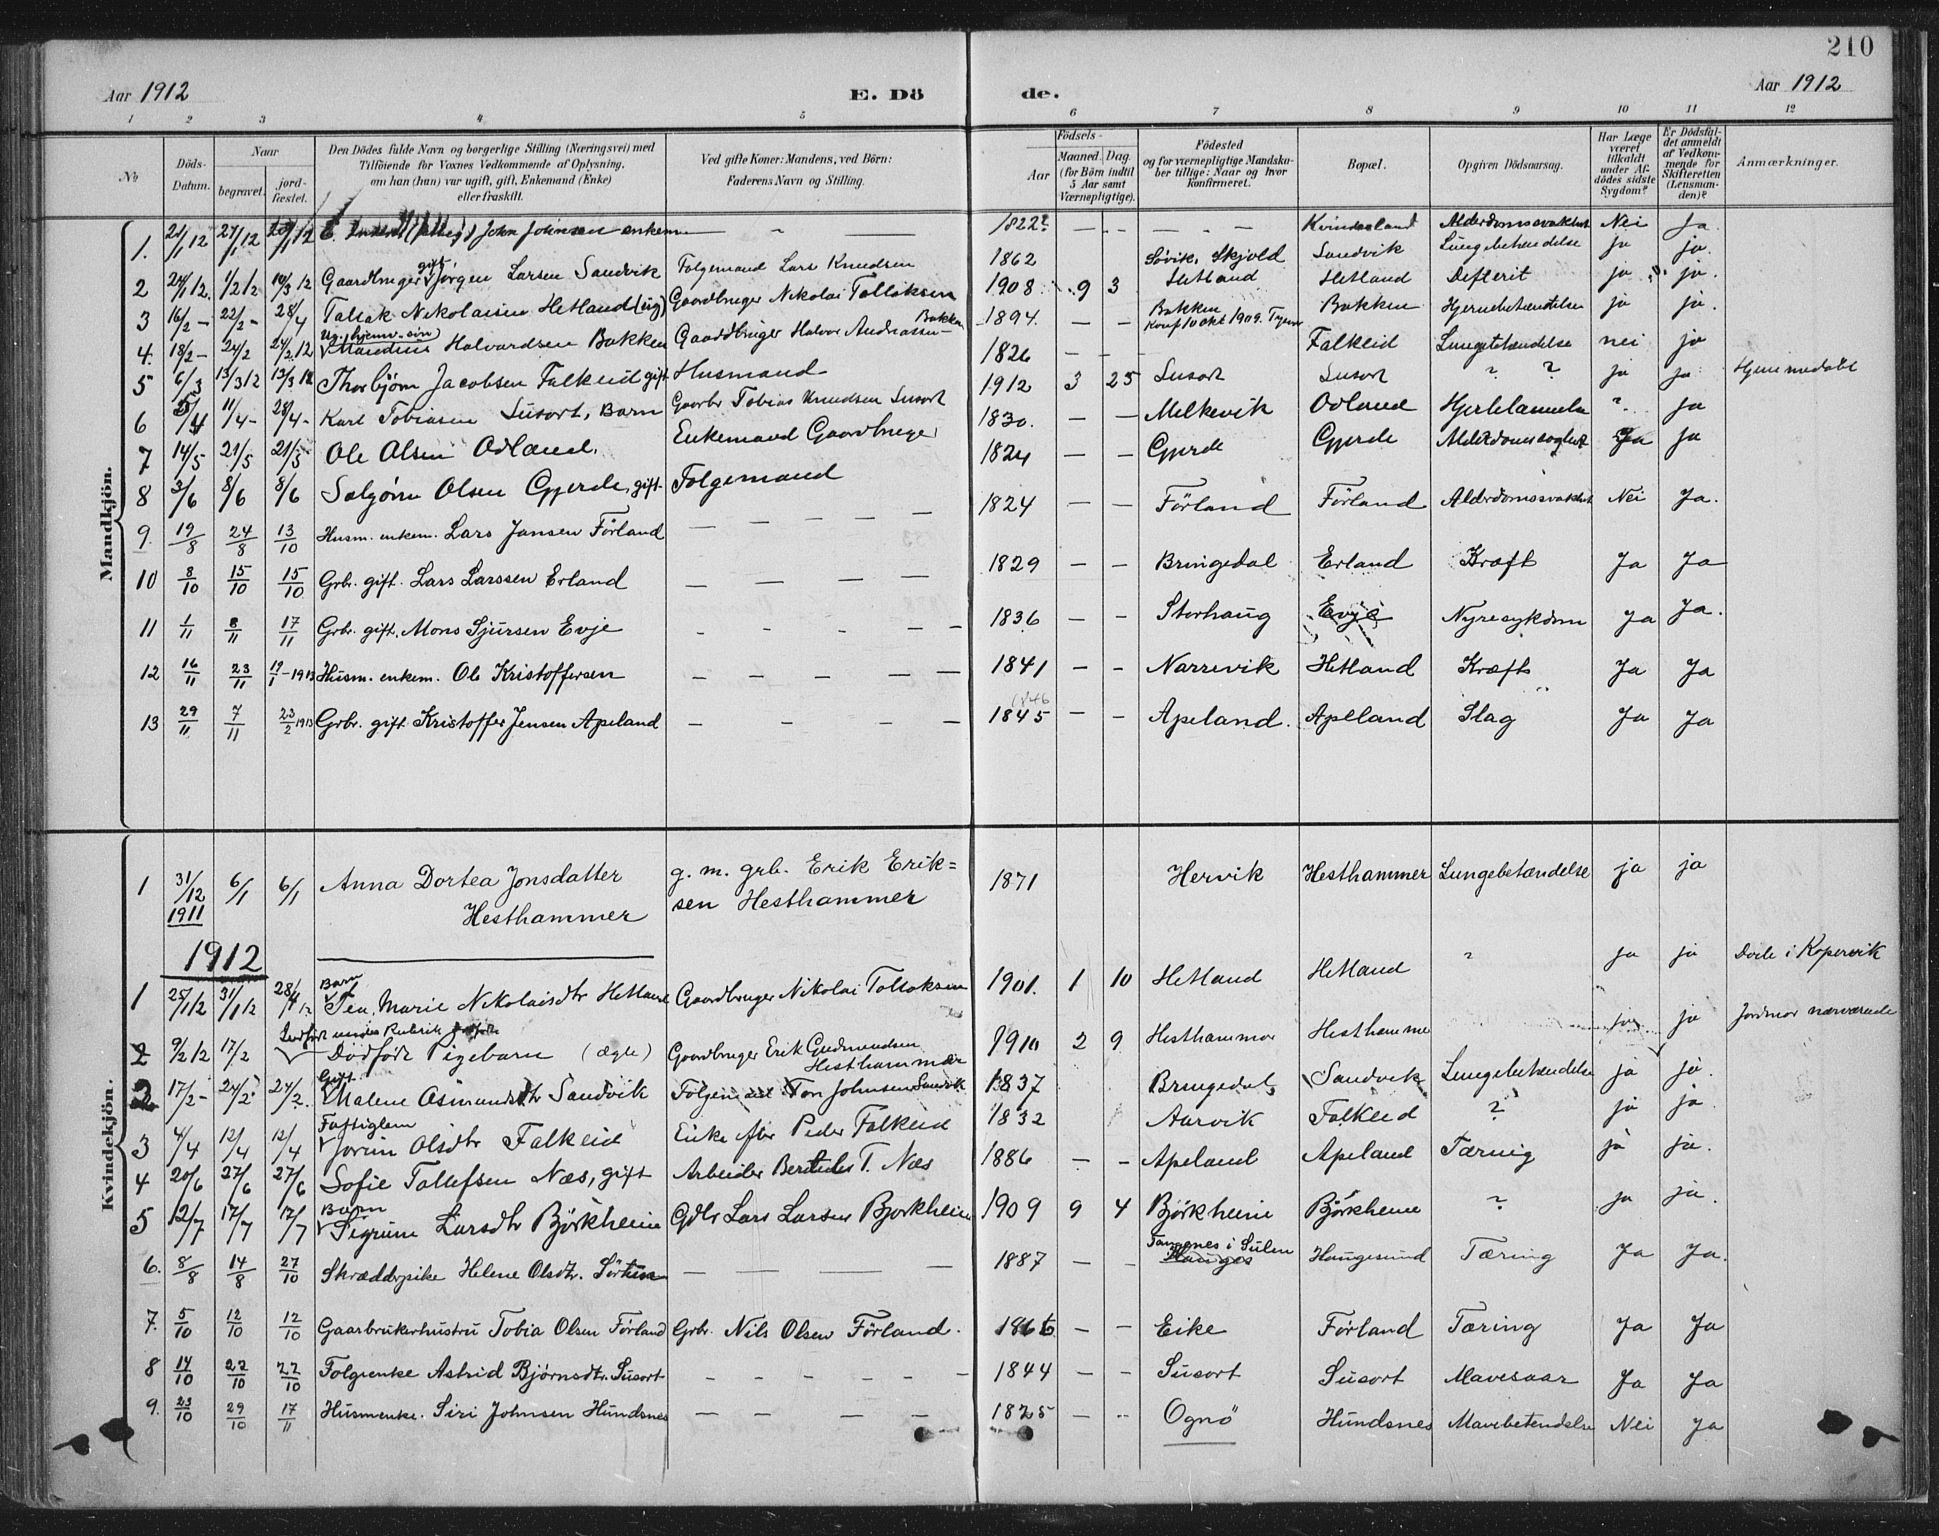 210
Aar 1912 E. Dö de. Aar 1912
1 2 3 4 5 6 7 8 9 10 11 12
No Döds-Datum. Naar begravet. jord-fæstet. Den Dödes fulde Navn og borgerlige Stilling (Næringsvei) med Tilföiende for Voxnes Vedkommende af Oplysning, om han (hun) var ugift, gift, Enkemand (Enke) eller fraskilt. Ved gifte Koner: Mandens, ved Börn: Faderens Navn og Stilling. Födsels- Aar Maaned. Dag. (for Börn indtil 5 Aar samt Værnepligtige). Födested og for værnepligtige Mandska-ber tillige: Naar og hvor konfirmeret. Bopæl. Opgiven Dödsaarsag. Har Læge været tilkaldt under Af-dödes sidste Sygdom? Er Dödsfal-det anmeldt af Vedkom-mende for Skifteretten (Lensman-den)? Anmærkninger.
Mandkjön.
1. 21/1 12 27/1 12 John Johnsen enkem. — " — 1822? — — — " — Kvindesland Alderdomssvakhet Nei Ja.
2 24/1 12. 1/2 12 10/3 12 Gaardbruger gift Jörgen Larsen Sandvik Folgemand Lars Knudsen 1862 Søvik, Skjold Sandvik Lungebetændelse ja ja.
3 16/2 - 22/2 - 28/4 Tallak Nikolaisen Hetland (ug) Gaardbruger Nikolai Tollaksen 1908. 9 3 Hetland Hetland Defterit ja ja.
4. 18/2 - 24/2 24/2 12 Halvardsen Bakken Gaardbruger Halvor Andreassen Bakken 1894. — — Bakken Konf 10 okt 1909. Bakken Hjernebetændelse ja ja.
5 6/3 13/3 12 13/3 12 Thorbjørn Jacobsen Falkeid gift Husmand 1826 — — — Falkeid Lungebetændelse nei ja
6 11/4 - 28/4 - Karl Tobiasen Susort, Barn Gaarbr Tobias Knudsen Susort 1912 3 25 Susort Susort ? ? ja ja Hjemmedøbt
7 14/5 21/5 21/5 Ole Olsen Odland. Enkemand Gaardbruger 1830. — — Melkevik Odland ? ja
8 3/6 8/6 8/6 Olsen Gjerde, gift Folgemand 1824 — — Gjerde Gjerde Ja ja
9. 19/8 24/8 13/10 Husm. enkem. Lars Jansen Förland — — — — 1824 — — Förland Förland Alderdomssvakhet Nei Ja.
10 8/10 15/10 15/10 Grbr. gift. Lars Larssen Erland — — — — 1829 — — Bringedal Erland Kræft Ja Ja
11 1/11 8/11 17/11 Grbr. gift. Mons Sjursen Evje - - - - 1836 - - Storhaug Evje Nyresykdom Ja Ja.
12 16/11 23/11 19/1 - 1913 Husm. enkem. Ole Kristoffersen - - - - 1841 - - Narrevik Hetland Kræft Ja Ja
13 29/11 7/11 23/2 1913 Grbr. gift. Kristoffer Jensen Apeland - - - - 1846 1845 - - Apeland. Apeland Slag Ja Ja
Kvindekjön.
1 31/12 1911 6/1 6/1 Anna Dortea Jonsdatter Hesthammer g. m. grb. Erik Erik=sen Hesthammer 1871 Hervik Hesthammer Lungebetændelse ja ja
1912
1 25/1 12 31/1 12 28/4 12 Barn Tea Marie Nikolaisdtr Hetland Gaardbruger Nikolai Tollaksen 1901. 1 10 Hetland Hetland ? ja ja Døde i Kopervik
2 9/2 12 17/2 Indført under Rubrik Dødfødt Pigebarn (ægte) Gaardbruger Erik Gudmundsen Hesthammer 1910 2 9 Hesthammer Hesthammer ja ja Jordmor nærværende
2 17/2 - 24/2 24/2. Gift Malene Asmundsdtr Sandvik Tore Johnsen Sandvik 1837 Bringedal Sandvik Lungebetændelse ja ja.
3 4/4 12/4 12/4 Fattiglem Jorun Olsdtr Falkeid Enke efter Peder Falkeid 1832 Aarvik Falkeid ? ja ja
4 20/6 27/6 27/6 Sofie Tollefsen Næs, gift Arbeider T. Næs 1886 — - Apeland Apeland Tæring ja ja.
5 12/7 17/7 17/7 Barn Sigrun Larsdtr Björkheim Gdbr Lars Larsen Bjorkheim 1909 9 4 Björkheim Björkheim ? ja ja.
6. 8/8 14/8 27/10 Skrædderpike Helene Olsdtr. — — — — 1887 — - Tangenes i Sulen Hauges Haugesund Tæring Ja Ja.
7. 5/10 12/10 12/10 Gaarbrukerhustru Tobia Olsen Förland Grbr. Nils Olsen Förland. 1866 — — Eike Förland Tæring Ja Ja
8 14/10 22/10 22/10 Folgeenke Astrid Bjørnsdtr. Susort - - - - - 1844 — - Susort Susort Mavesaar Ja Ja
9. 23/10 29/10 17/11 Husmenke. Siri Johnsen Hundsnes — — — — 1825 — - Ognö Hundsnes Mavebetendelse Nei Ja